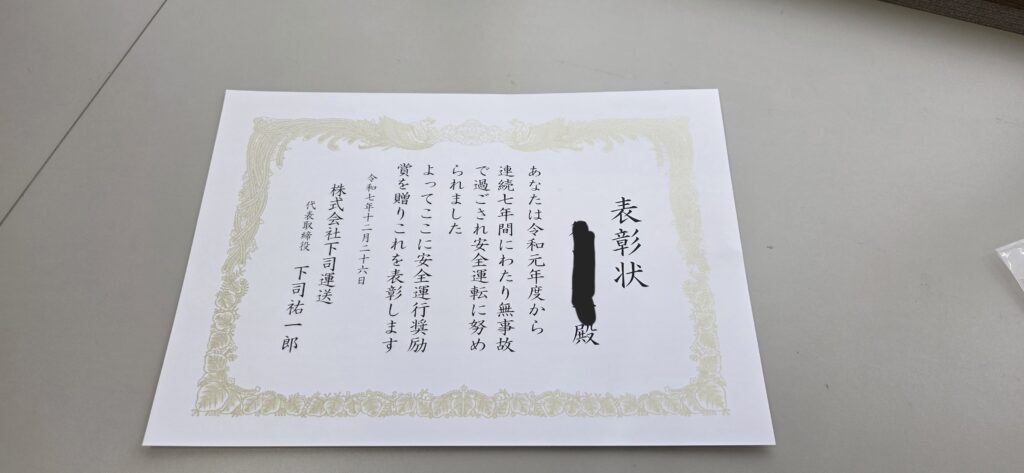 表彰状
殿
あなたは令和元年度から
連続七年間にわたり無事故
で過ごされ安全運転に努め
られました
よってここに安全運行奨励
賞を贈りこれを表彰します
令和七年十二月二十六日
株式会社下司運送
代表取締役 下司祐一郎